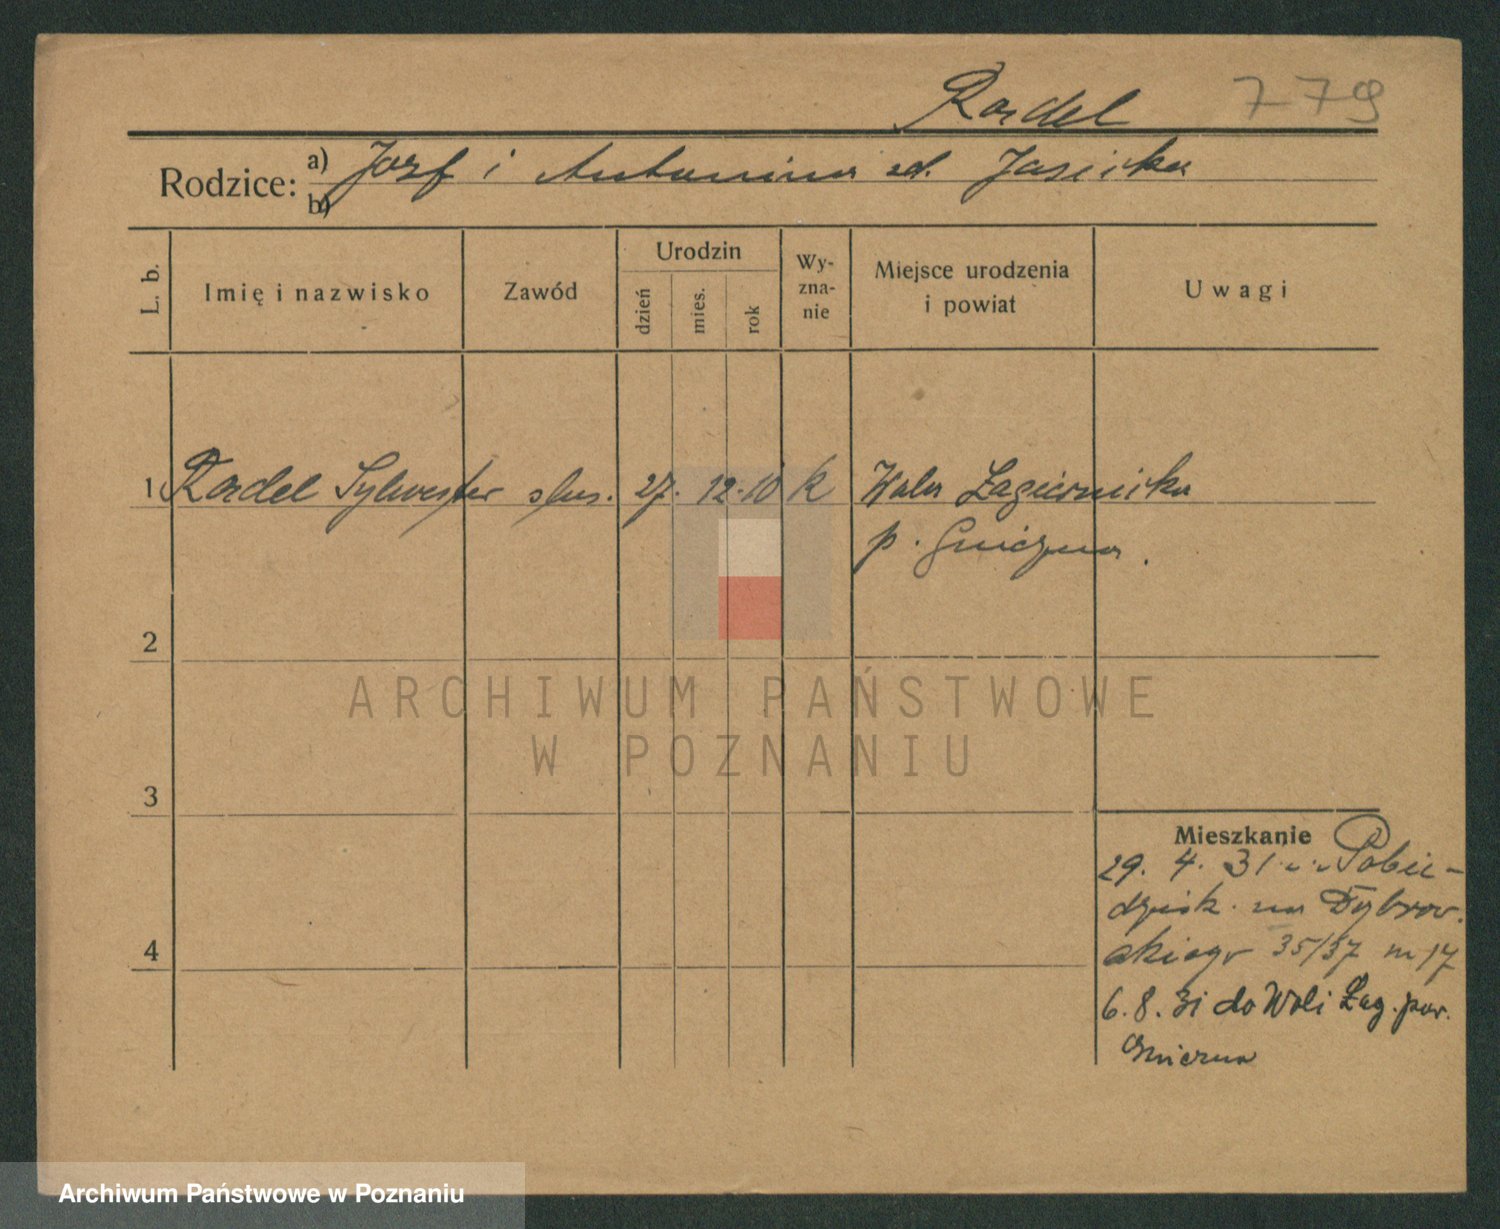 Radel 779
Rodzice: a) Józef i Antonina zd. Jasicka
b)
L. b. Imię i nazwisko Zawód Urodzin dzień mies. rok Wy-zna-nie Miejsce urodzenia i powiat Uwagi
1 Radel Sylwester slus. 27. 12. 10 k Wola Łagiewnicka
p. Gniezno.
2
ARCHIWUM PAŃSTWOWE
W POZNANIU
3
Mieszkanie
29. 4. 31 z Pobie-
dzisk. na Dąbrow.
skiego 35/37 m 17
4
6. 8. 31 do Woli Łag. pow.
Gniezno
Archiwum Państwowe w Poznaniu